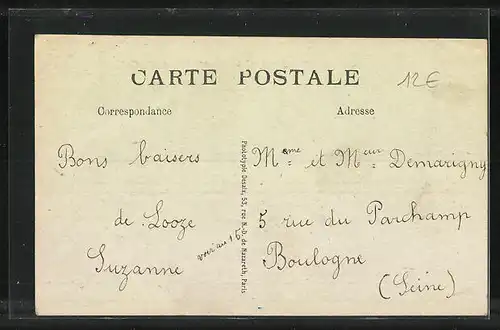 CARTE POSTALE
12€
Correspondance
Adresse
Bons baisers
de Looze
Suzanne
Phototypie Desaix, 53, rue N.-D. de Nazareth, Paris
Mme et Meur Demarigny
5 rue du Parchamp
Boulogne
(Seine)